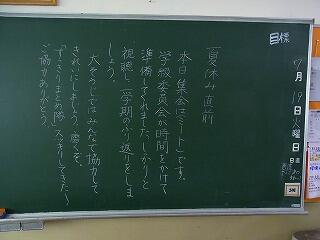 目標
7月19日火曜日
日直
夏休み直前
本日集会(ミート)です。
学級委員が時間をかけて
準備してくれました。しっかりと
視聴し一学期のふり返りをしま
しょう。
大そうじではみんなで協力して
きれいにしましょう。暑くて、
ご協力ありがとう。